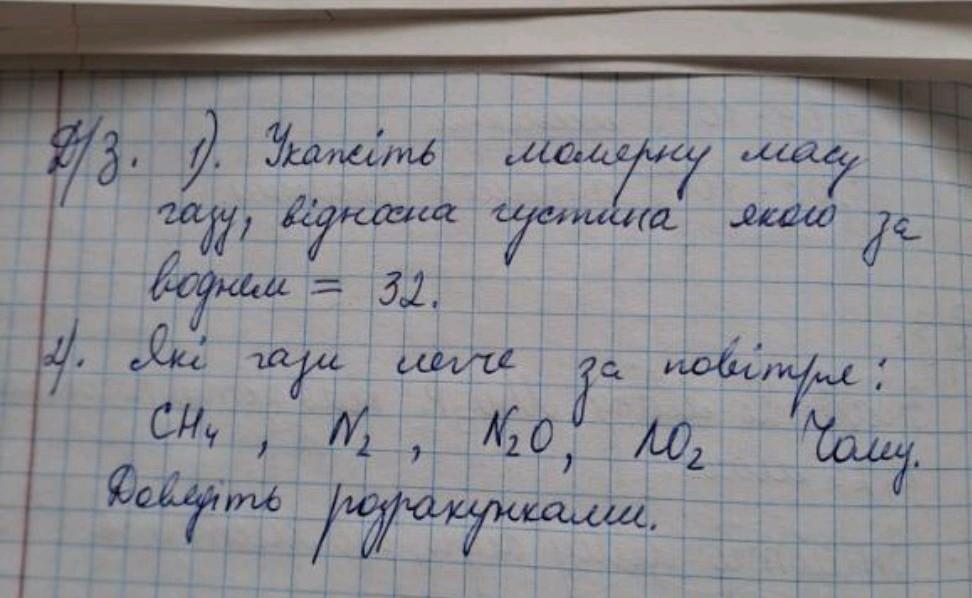 Д/З. 1). Укажіть молярну масу
газу, відносна густина якого за
воднем = 32.
2). Які гази легче за повітря:
CH₄, N₂, N₂O, NO₂ Чому.
Доведіть розрахунками.